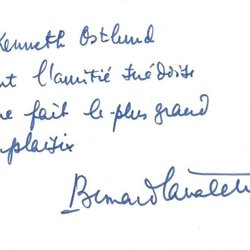 Kenneth Ostlund
nt l'amitié suédoise
ne fait le plus grand
plaisir
Bernard